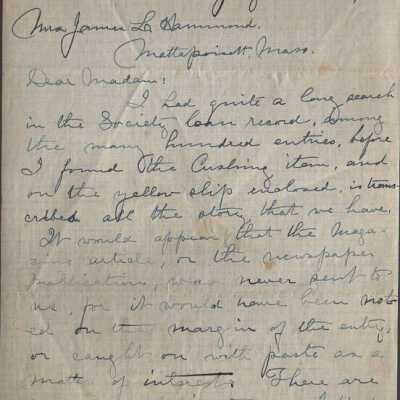 Mrs James L. Hammond.
Mattapoisett, Mass.
Dear Madam:
I had quite a long search
in the Society loan record, among
the many hundred entries, before
I found the Cushing item, and
on the yellow slip inclosed, is trans
cribed all the story, that we have.
It would appear, that the Maga-
zine article, or the newspaper
publication, was never sent to
us, for it would have been not-
ed on the margin of the entry,
or caught on with paste as a
matter of interest. There are